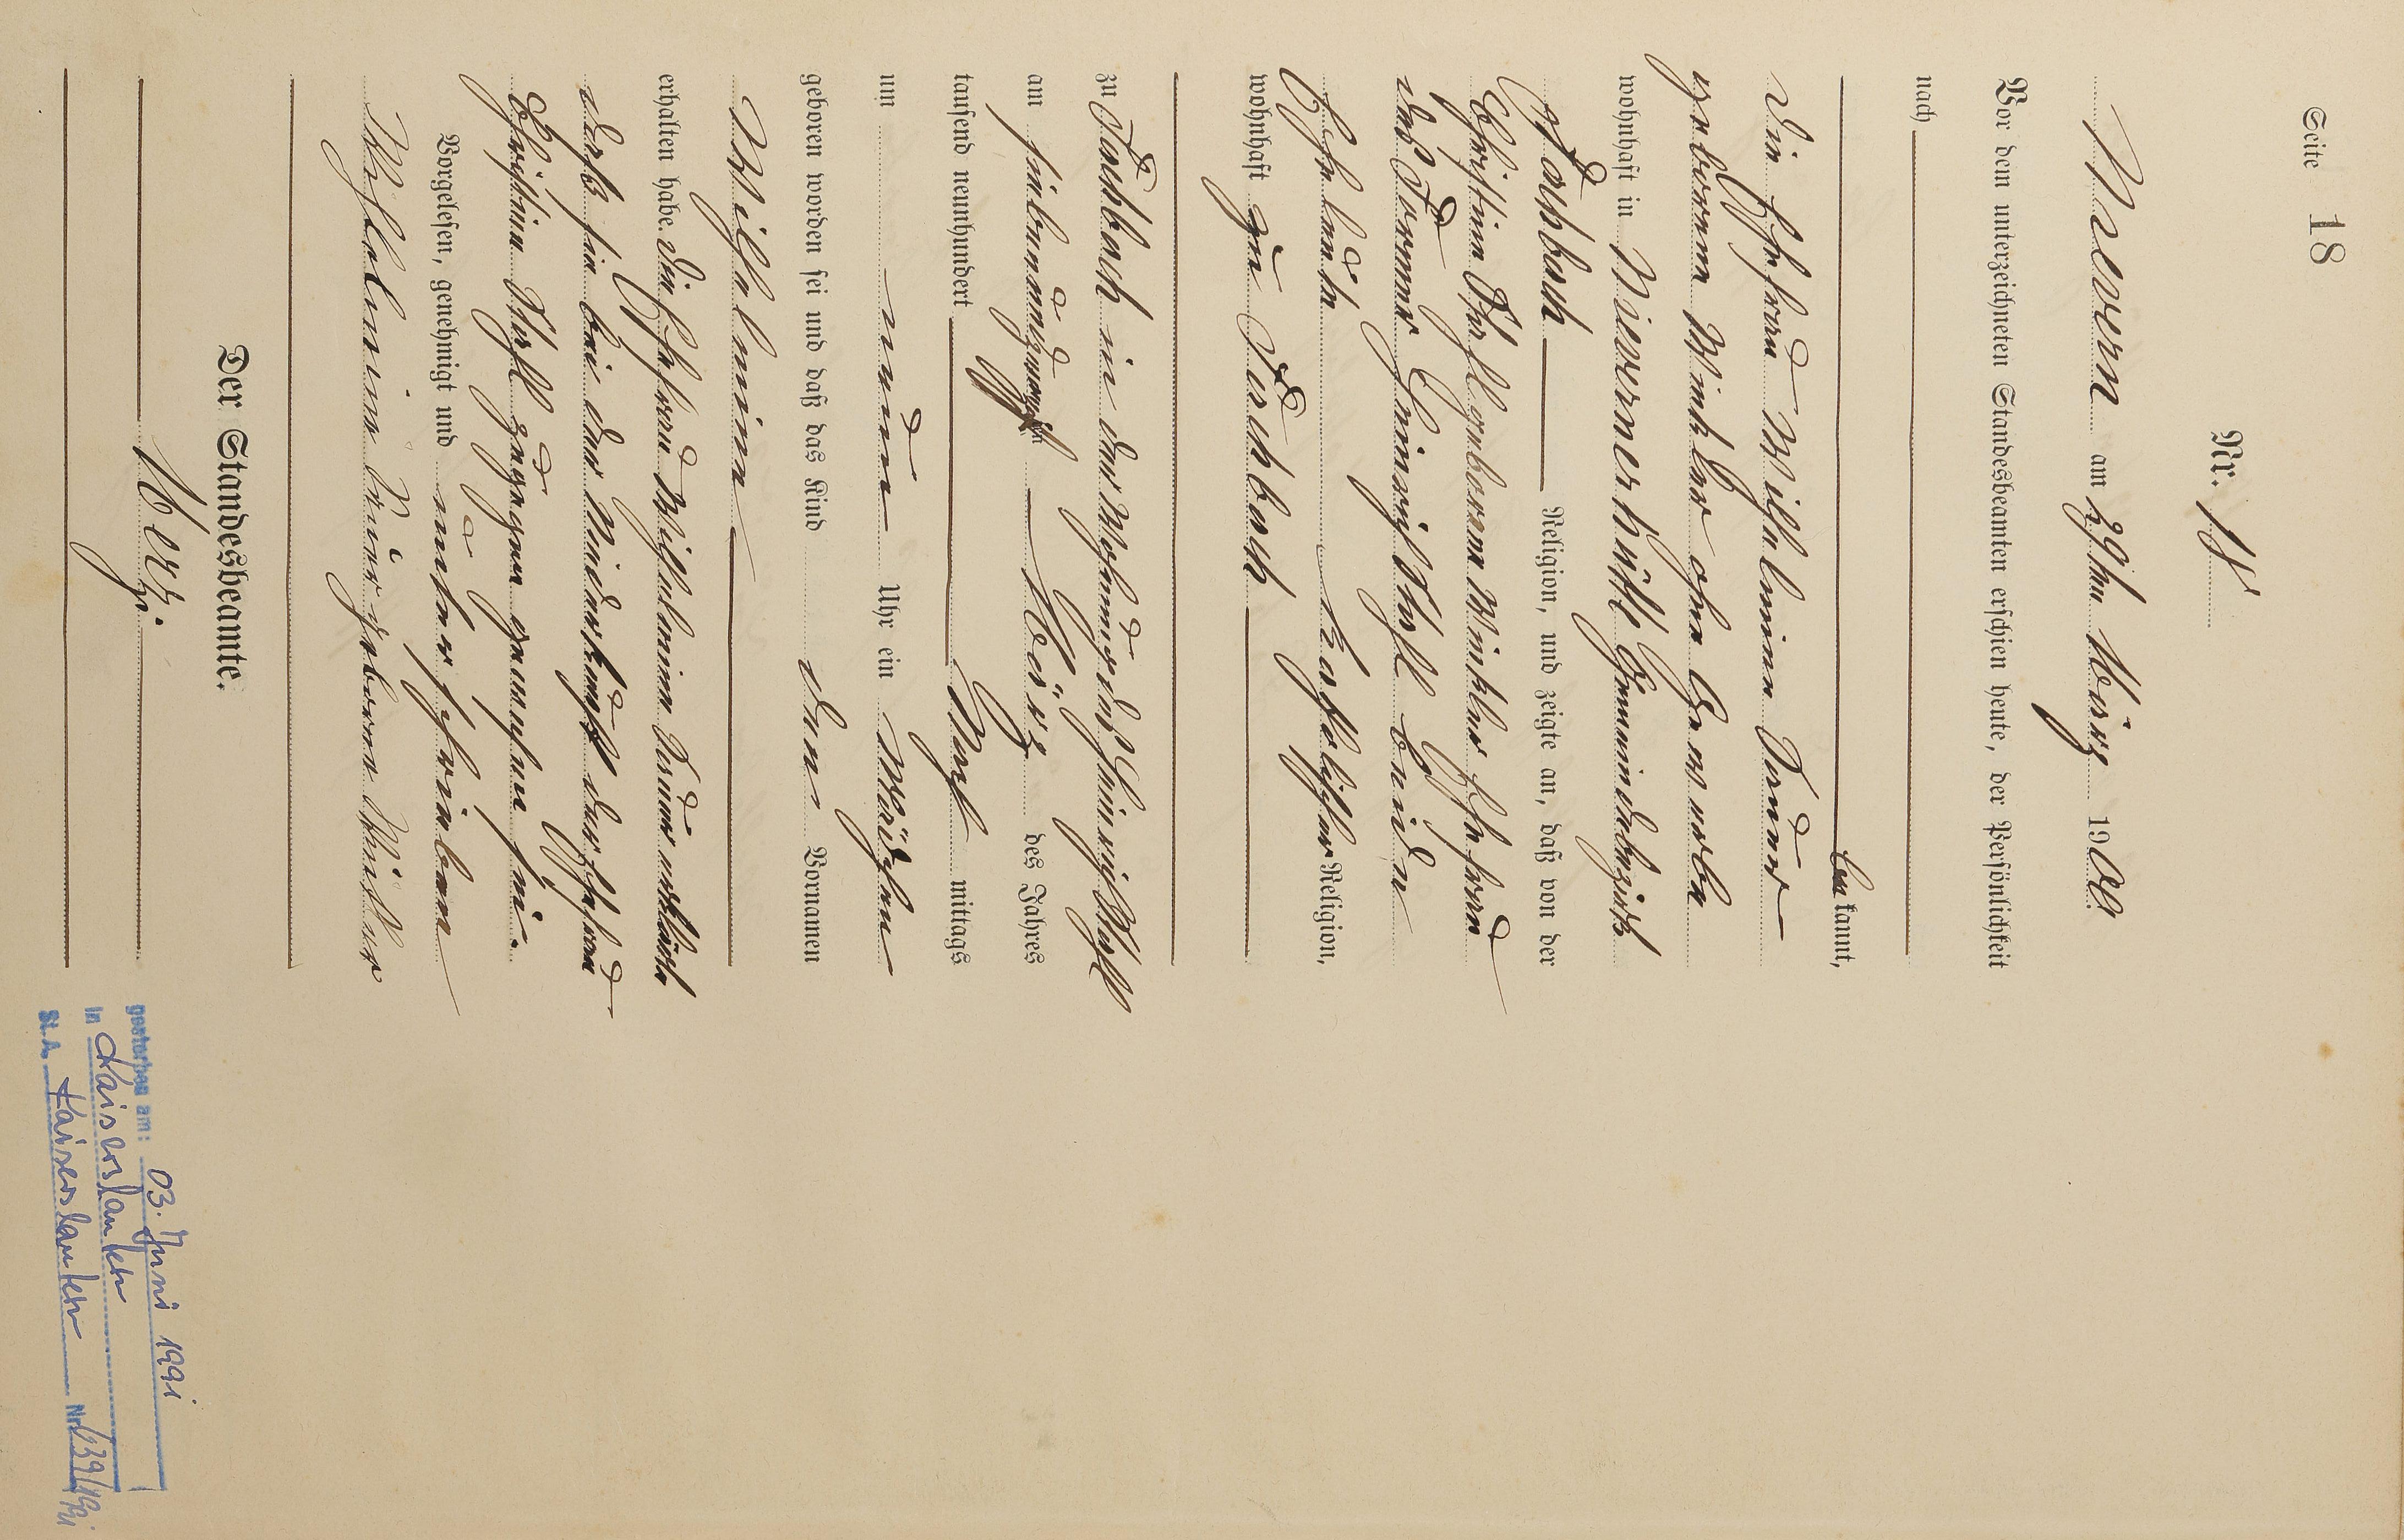 Seite 18
Nr. 18
Nievern am 29ten März 1900.
Vor dem unterzeichneten Standesbeamten erschien heute, der Persönlichkeit
nach
be kannt,
die Ehefrau Wilhelmine
geborene Winkler ohne Gewerbe
wohnhaft in Nievernerhütte Gemeindebezirk
Fachbach Religion, und zeigte an, daß von der
Christine geborene Winkler Ehefrau
des Former Heinrich beide
Eheleute katholischer Religion,
wohnhaft zu Fachbach
zu Fachbach in der Wohnung des Heinrich
am siebenundzwanzigsten März des Jahres
tausend neunhundert Nach mittags
um neun Uhr ein Mädchen
geboren worden sei und daß das Kind den Vornamen
Wilhelmine
erhalten habe. Die Ehefrau Wilhelmine erklärte
daß sie bei der Niederkunft der Ehefrau
Christine zugegen gewesen sei.
Vorgelesen, genehmigt und unterschrieben
Wilhelmine geborene
Der Standesbeamte.
Merz.
gestorben am: 03. Juni 1991
in Kaiserslautern
St. A. Kaiserslautern Nr. 639/1991